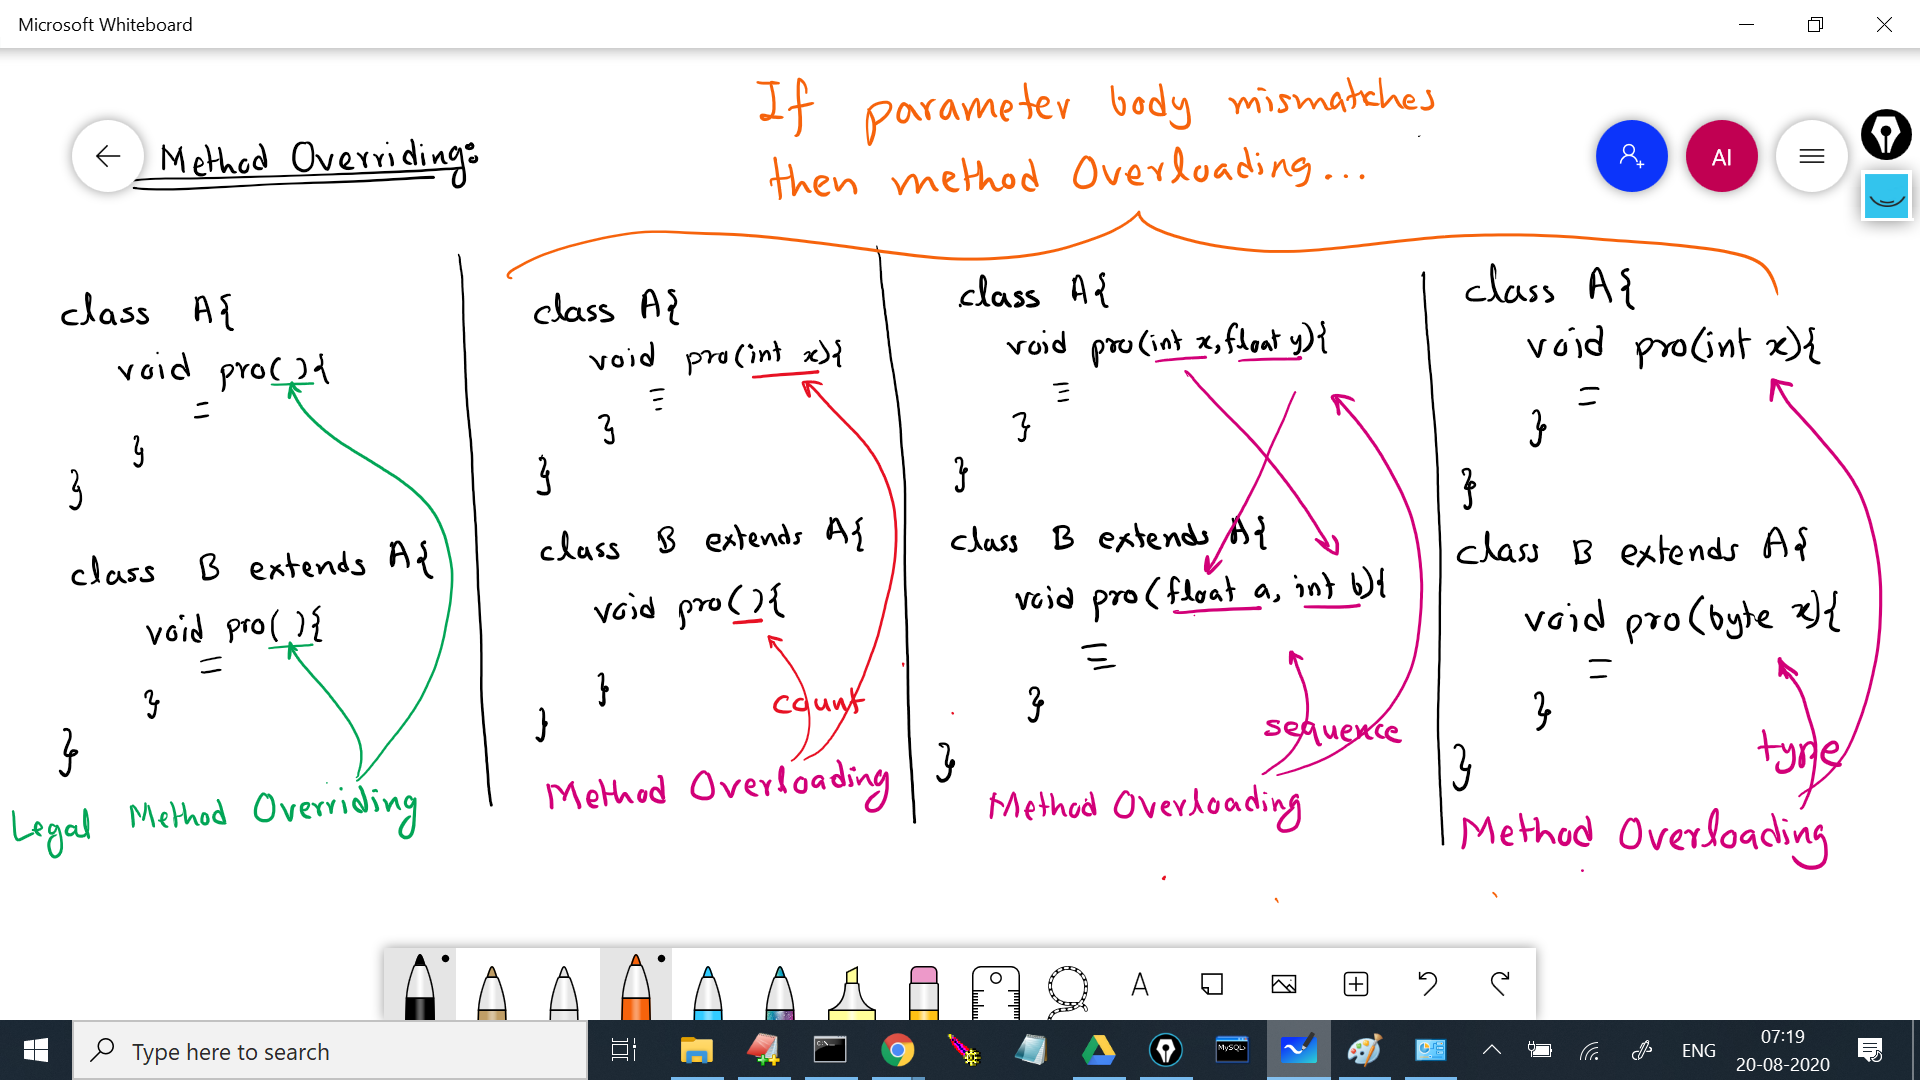 Microsoft Whiteboard
If parameter body mismatches
then method Overloading...
Method Overriding:
AI
class A{
void pro( ){
=
}
}
class B extends A{
void pro( ){
=
}
}
Legal Method Overriding
class A{
void pro(int x){
≡
}
}
class B extends A{
void pro( ){
}
}
count
Method Overloading
class A{
void pro(int x, float y){
≡
}
}
class B extends A{
void pro(float a, int b){
≡
}
}
sequence
Method Overloading
class A{
void pro(int x){
=
}
}
class B extends A{
void pro(byte x){
=
}
}
type
Method Overloading
A
Type here to search
C:\_
MySQL
ENG
07:19
20-08-2020